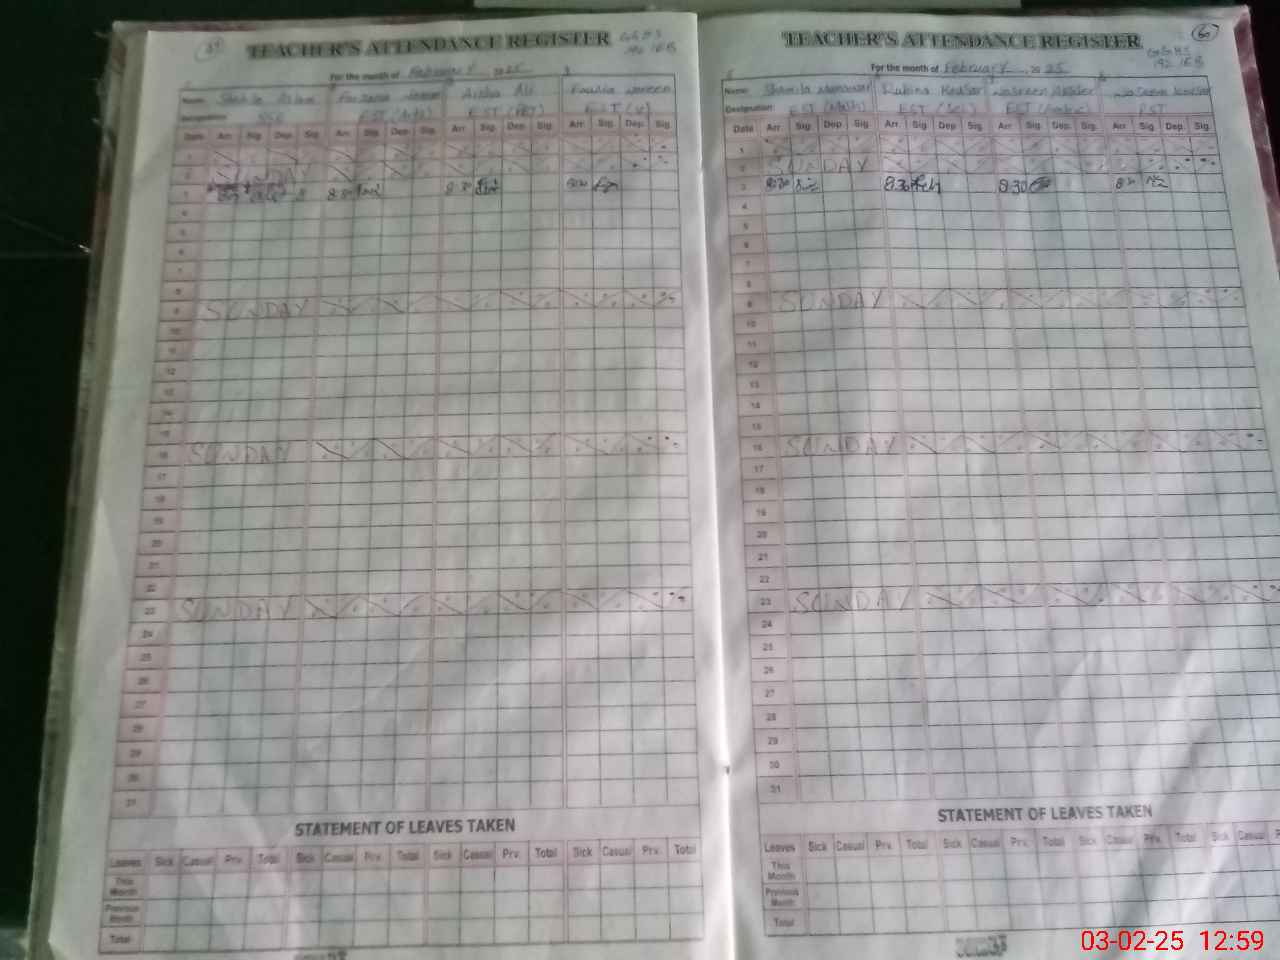 TEACHER'S ATTENDANCE REGISTER
For the month of February 2025
Name: Shahila Aslam Farzana Aisha Ali Fouzia Noreen
Designation: SSE EST EST EST
Date Arr. Sig. Dep. Sig Arr. Sig. Dep. Sig. Arr. Sig. Dep. Sig. Arr. Sig. Dep. Sig
1
2 SUNDAY
3 8:30 8:30 8:30
4
5
6
7
8
9 SUNDAY
10
11
12
13
14
15
16 SUNDAY
17
18
19
20
21
22
23 SUNDAY
24
25
26
27
28
29
30
31
STATEMENT OF LEAVES TAKEN
Leaves Sick Casual Prv. Total Sick Casual Prv. Total Sick Casual Prv. Total Sick Casual Prv. Total
This Month
Previous Month
Total
60
TEACHER'S ATTENDANCE REGISTER
For the month of February 2025
Name: Shamila Rubina Kousar Nasreen Akhter Kousar
Designation: EST (Math) EST (Sci) EST PST
Date Arr. Sig. Dep. Sig. Arr. Sig. Dep. Sig. Arr. Sig. Dep. Sig. Arr. Sig. Dep. Sig.
1
2 SUNDAY
3 8:30 8:30 8:30
4
5
6
7
8
9 SUNDAY
10
11
12
13
14
15
16 SUNDAY
17
18
19
20
21
22
23 SUNDAY
24
25
26
27
28
29
30
31
STATEMENT OF LEAVES TAKEN
Leaves Sick Casual Prv. Total Sick Casual Prv. Total Sick Casual Prv. Total Sick Casual
This Month
Previous Month
Total
03-02-25 12:59